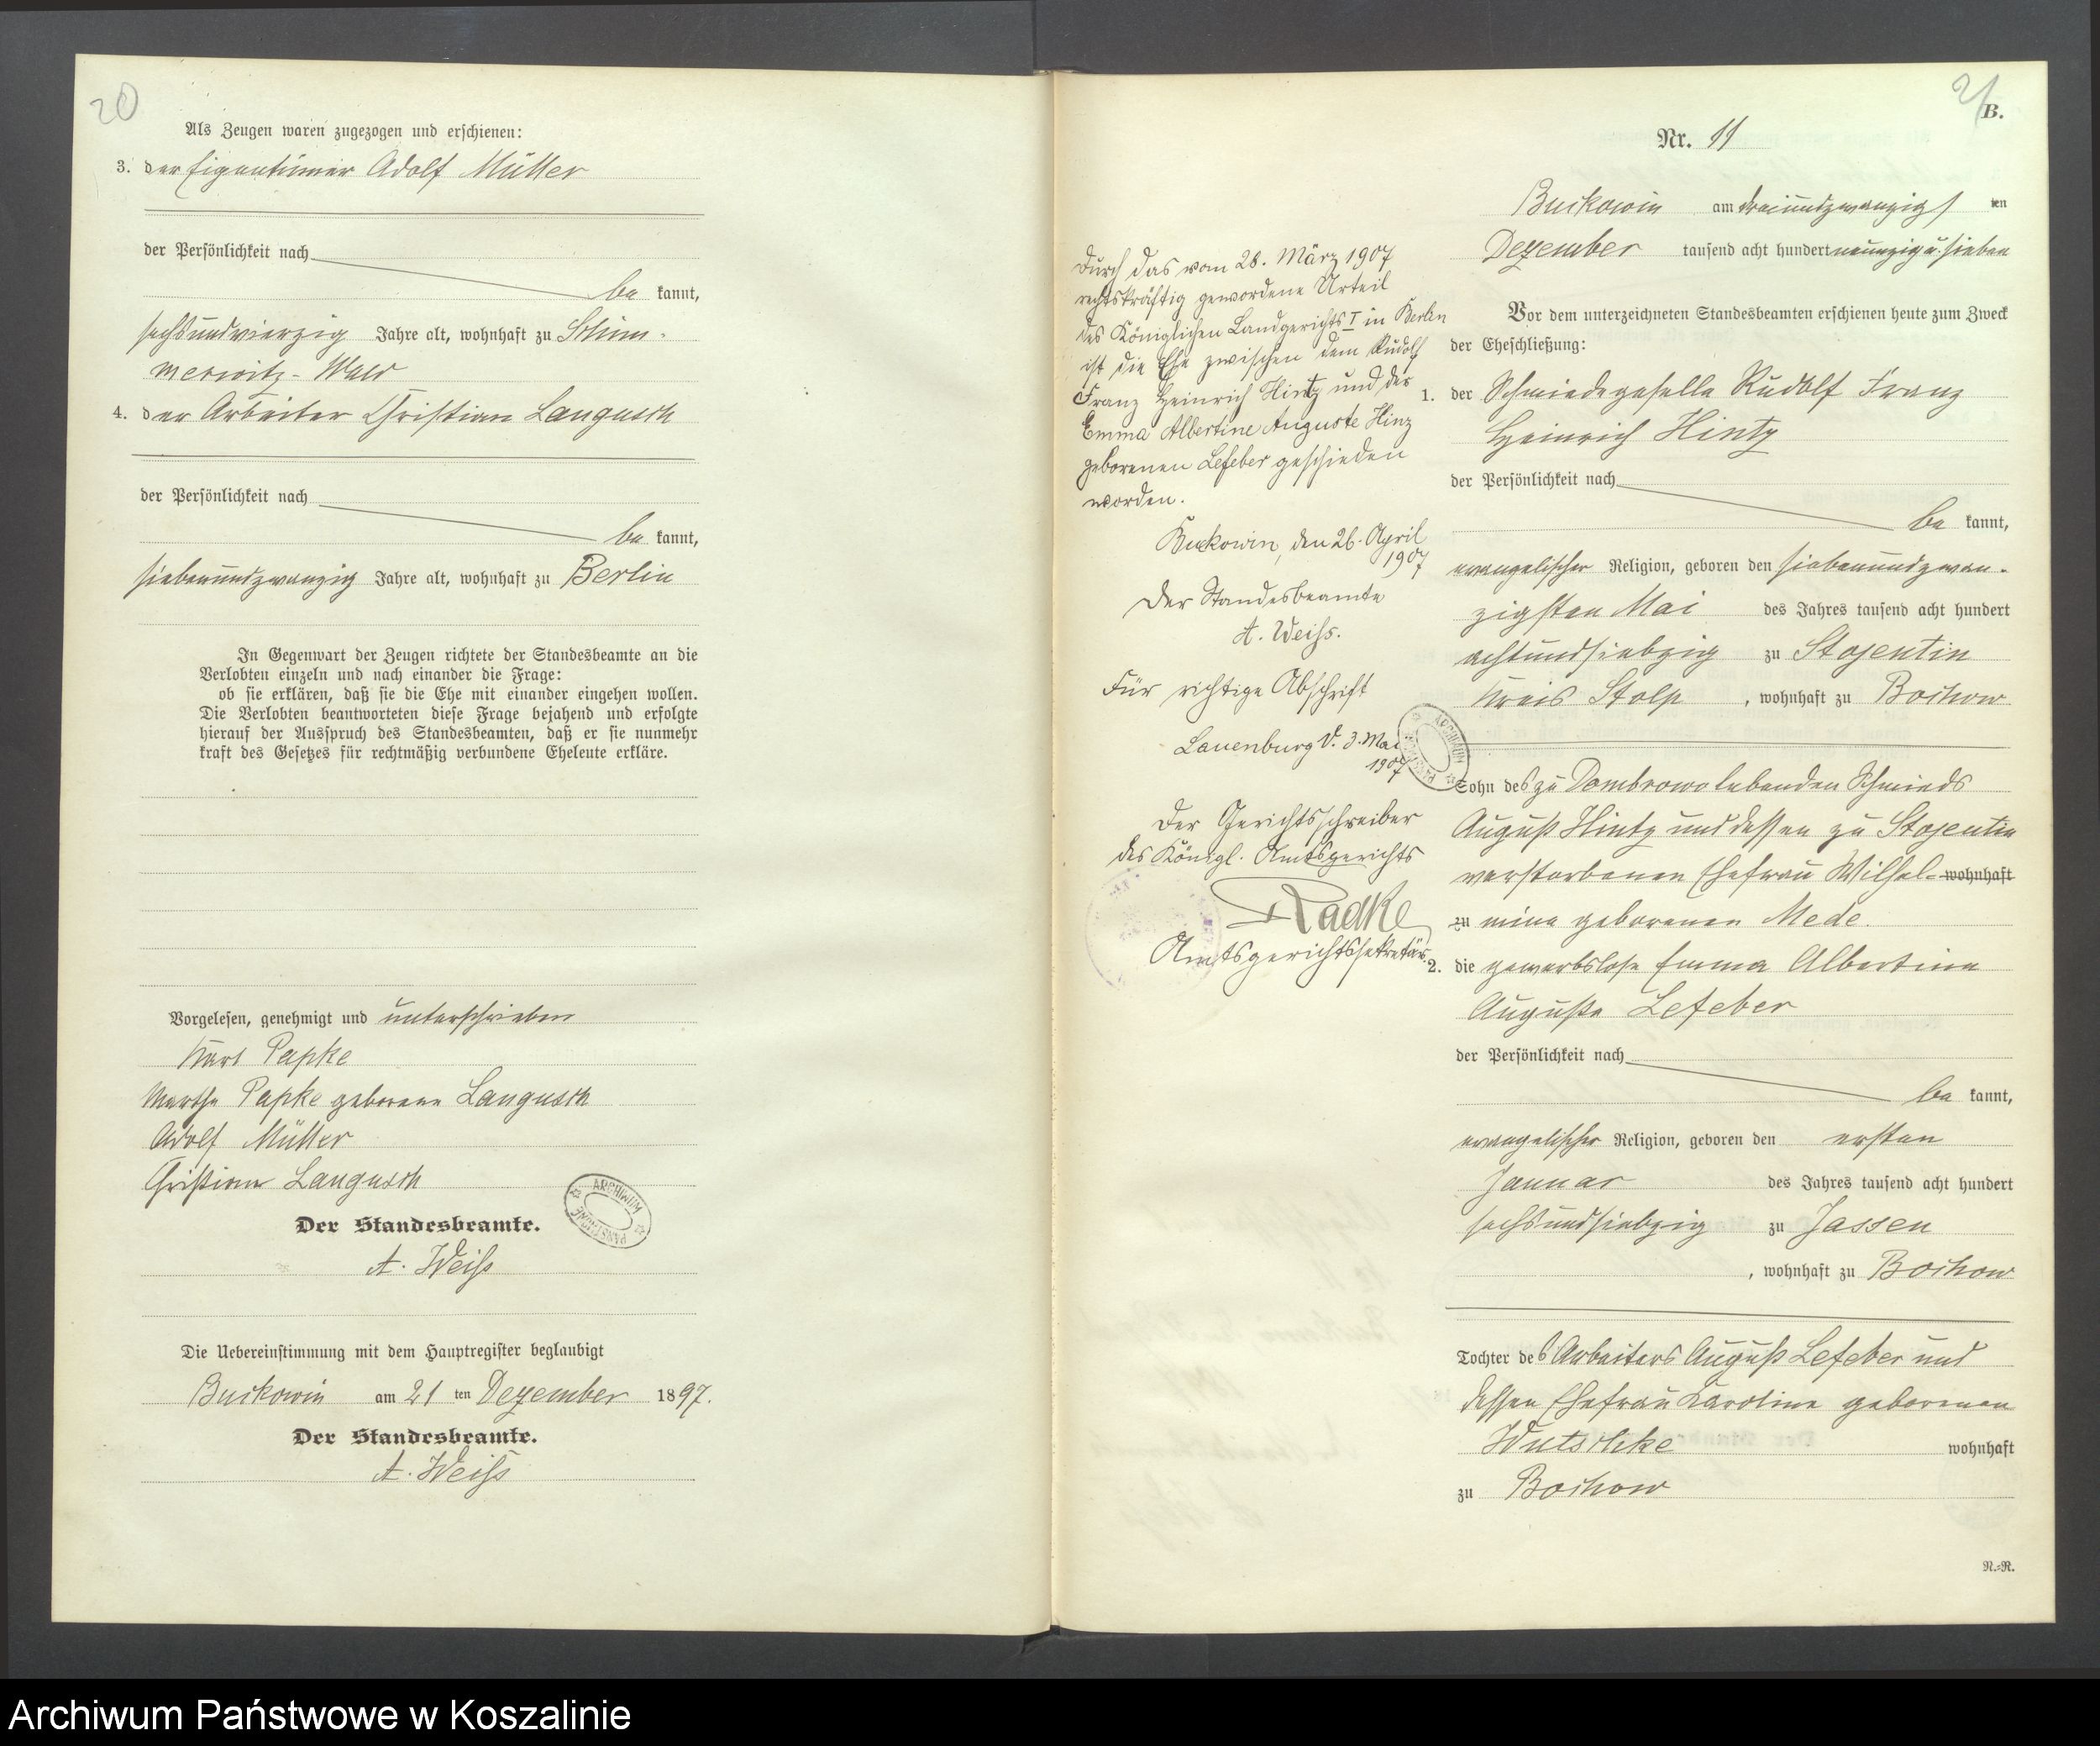 20
Als Zeugen waren zugezogen und erschienen:
3. der Eigentümer Adolf Müller
der Persönlichkeit nach
be kannt,
sechsundvierzig Jahre alt, wohnhaft zu Schim-
merwitz-Wald
4. der Arbeiter Christian Langusch
der Persönlichkeit nach
be kannt,
siebenundzwanzig Jahre alt, wohnhaft zu Berlin
In Gegenwart der Zeugen richtete der Standesbeamte an die
Verlobten einzeln und nach einander die Frage:
ob sie erklären, daß sie die Ehe mit einander eingehen wollen.
Die Verlobten beantworteten diese Frage bejahend und erfolgte
hierauf der Ausspruch des Standesbeamten, daß er sie nunmehr
kraft des Gesetzes für rechtmäßig verbundene Eheleute erkläre.
Vorgelesen, genehmigt und unterschrieben
Karl Papke
Martha Papke geborene Langusch
Adolf Müller
Christian Langusch
ARCHIWUM PAŃSTWOWE
Der Standesbeamte.
A. Weiß
Die Uebereinstimmung mit dem Hauptregister beglaubigt
Buckowin am 21 ten Dezember 1897.
Der Standesbeamte.
A. Weiß
21
B.
Nr. 11
Buckowin am dreiundzwanzigsten
Dezember tausend acht hundert neunzig u. sieben
Vor dem unterzeichneten Standesbeamten erschienen heute zum Zweck
der Eheschließung:
1. der Schmiedegeselle Rudolf Franz
Heinrich Hintz
der Persönlichkeit nach
be kannt,
evangelischer Religion, geboren den siebenundzwan-
zigsten Mai des Jahres tausend acht hundert
achtundsiebzig zu Stojentin
Kreis Stolp, wohnhaft zu Bochow
Sohn des zu Dombrowo lebenden Schmieds
August Hintz und dessen zu Stojentin
verstorbenen Ehefrau Wilhel- wohnhaft
zu mine geborenen Mede.
2. die gewerbslose Emma Albertine
Auguste Lefeber
der Persönlichkeit nach
be kannt,
evangelischer Religion, geboren den ersten
Januar des Jahres tausend acht hundert
sechsundsiebzig zu Jassen
, wohnhaft zu Bochow
Tochter des Arbeiters August Lefeber und
dessen Ehefrau Karoline geborenen
Wutschke wohnhaft
zu Bochow
N.-R.
Durch das vom 28. März 1907
rechtskräftig gewordene Urteil
des Königlichen Landgerichts I in Berlin
ist die Ehe zwischen dem Rudolf
Franz Heinrich Hintz und der
Emma Albertine Auguste Hinz
geborenen Lefeber geschieden
worden.
Buckowin, den 26. April
1907
Der Standesbeamte
A. Weiss.
Für richtige Abschrift
Lauenburg d. 3. Mai
1907
ARCHIWUM PAŃSTWOWE
Der Gerichtsschreiber
des Königl. Amtsgerichts
Radke
Amtsgerichtssekretär.
Archiwum Państwowe w Koszalinie